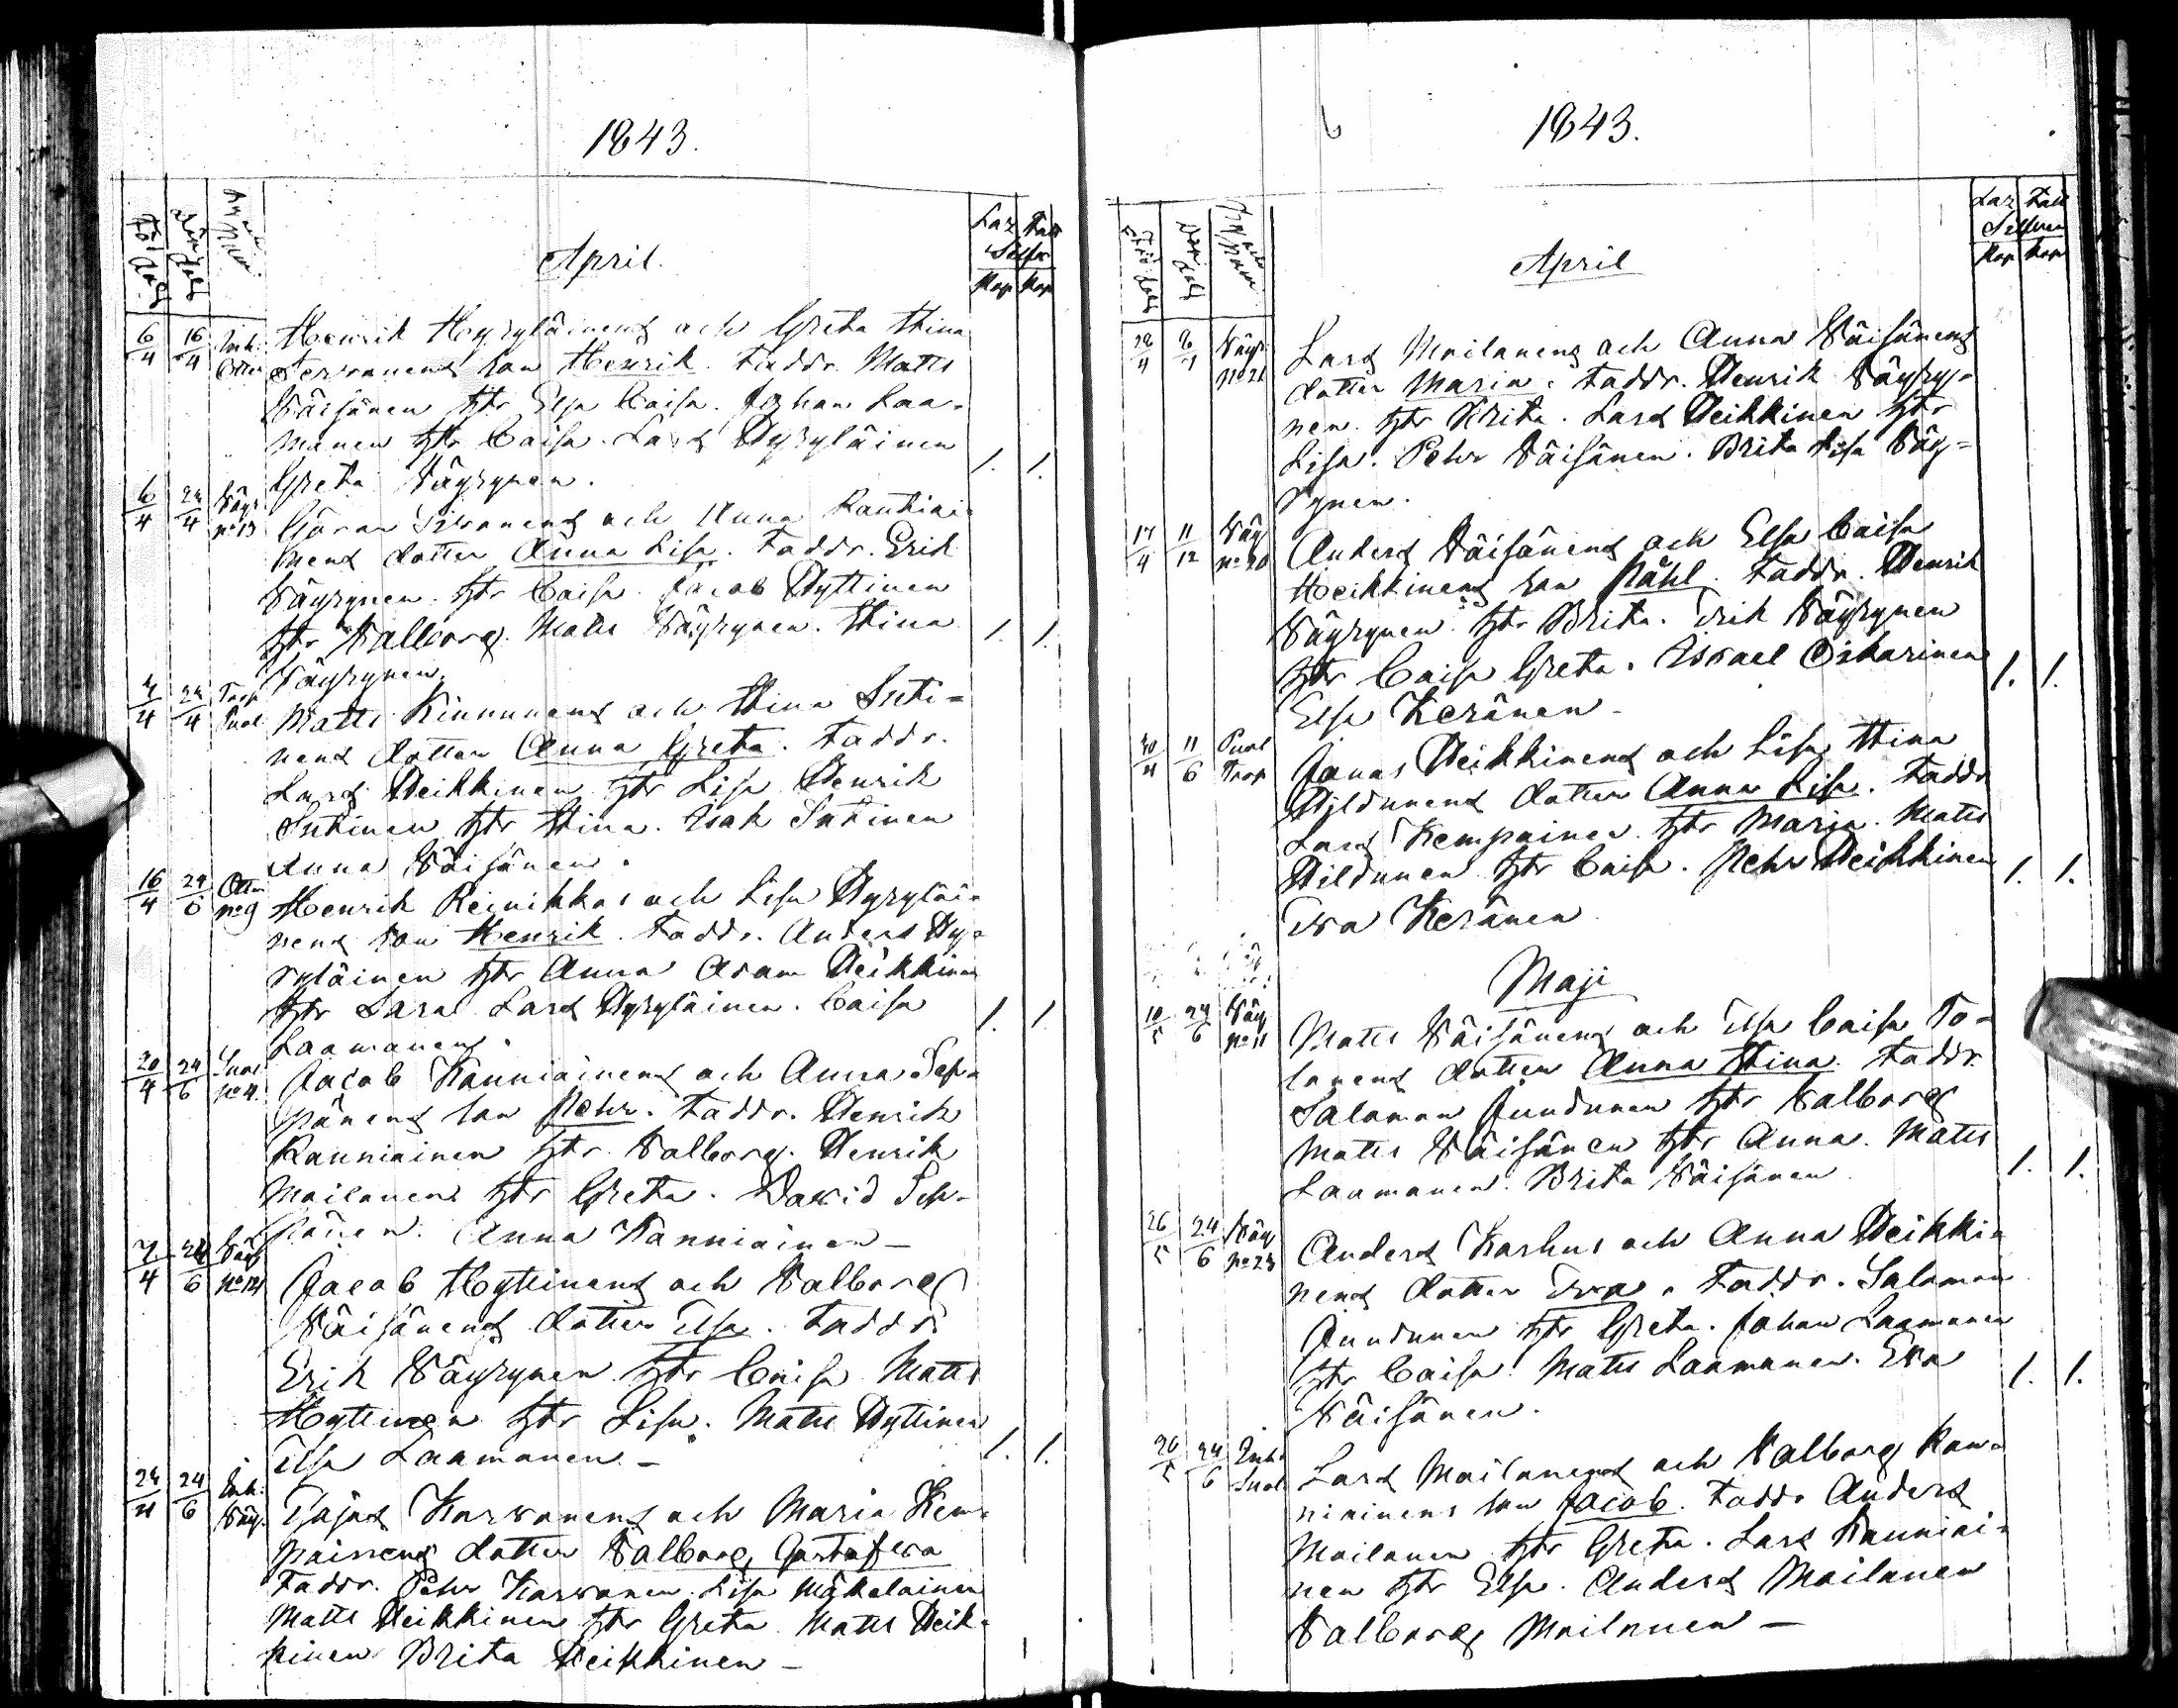 1843.
April.
6/4 16/4 Henrik Hyryläinens och Greta Stina
Terwonens son Henrik. Faddr. Matts
Väisänen htr Elsa Caisa. Johan Laa-
manen htr Caisa. Lars Hyryläinen
Greta Väyrynen. 1. 1.
6/4 24/4 Väyr no 13 Göran Sirvonens och Anna Rautiai-
nens dotter Anna Lisa. Faddr. Erik
Väyrynen htr Caisa. Jacob Hyttinen
htr Valborg. Matts Väyrynen. Stina 1. 1.
Väyrynen.
4/4 24/4 Matts Kinnunens och Stina Suti-
nens dotter Anna Greta. Faddr.
Lars Heikkinen htr Lisa Henrik
Sutinen htr Stina. Isak Sutinen
Anna Väisänen.
16/4 24/6 no 9 Henrik Reinikkas och Lisa Hyryläi-
nens son Henrik. Faddr. Anders Hy-
ryläinen htr Anna Adam Heikkinen
htr Sara Lars Hyryläinen. Caisa 1. 1.
Laamanen.
20/4 24/6 no 4 Jacob Kanniainens och Anna Sep-
pänens son Pehr. Faddr. Henrik
Kanniainen htr Valborg. Henrik
Moilanens htr Greta. David Sep-
pänen. Anna Kanniainen —
7/4 24/6 Väyr no 124 Jacob Hyttinens och Valborg
Väisänens dotter Elsa. Faddr.
Erik Väyrynen htr Caisa Matts
Hyttinen htr Lisa. Matts Hyttinen
Elsa Laamanen — 1. 1.
24/4 24/6 Enk. Väyr. Karvonens och Maria Kem-
painens dotter Valborg Gustafva
Faddr. Pehr Karvonen. Lisa Mykelainen
Matts Heikkinen htr Greta Matts Heik-
kinen Brita Heikkinen —
6
1843.
April
28/4 Väyr no 21 Lars Moilanens och Anna Väisänens
dotter Maria. Faddr. Henrik Väyry-
nen htr Brita. Lars Heikkinen htr
Lisa. Pehr Väisänen. Brita Lisa Väy-
rynen.
17/4 11/12 Väy no 20 Anders Väisänens och Elsa Caisa
Heikkinens son Påhl. Faddr. Henrik
Väyrynen htr Brita. Erik Väyrynen
htr Caisa Greta. Israel Oikarinen 1. 1.
Elsa Keränen —
30/4 11/6 Jonas Heikkinens och Lisa Stina
Hildunens dotter Anna Lisa. Faddr
Lars Kempainen htr Maria. Matts
Hildunen htr Caisa. Pehr Heikkinen 1. 1.
Eva Keränen
Maji
10/5 24/6 Väy no 11 Matts Väisänens och Elsa Caisa To-
lonens dotter Anna Stina. Faddr.
Salomon Jundunen htr Valborg
Matts Väisänen htr Anna. Matts
Laamanen. Brita Väisänen 1. 1.
26/5 24/6 Väy no 23 Anders Karhus och Anna Heikki-
nens dotter Eva. Faddr. Salomon
Jundunen htr Greta. Johan Laamanen
htr Caisa Matts Laamanen. Eva 1. 1.
Väisänen.
26/5 24/6 Lars Moilanens och Valborg Kan-
niainens son Jacob. Faddr Anders
Moilanen htr Greta. Lars Kanniai-
nen htr Elsa. Anders Moilanen
Valborg Moilanen —